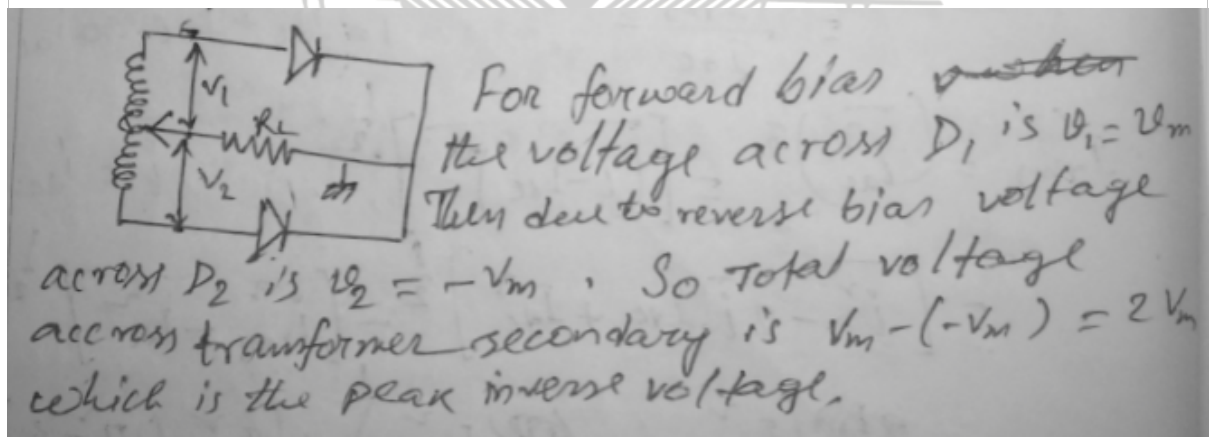 V₁
R_L
V₂
For forward bias
the voltage across D₁ is v₁ = v_m
Then due to reverse bias voltage
across D₂ is v₂ = -V_m. So Total voltage
accross transformer secondary is V_m-(-V_m) = 2 V_m
which is the peak inverse voltage.